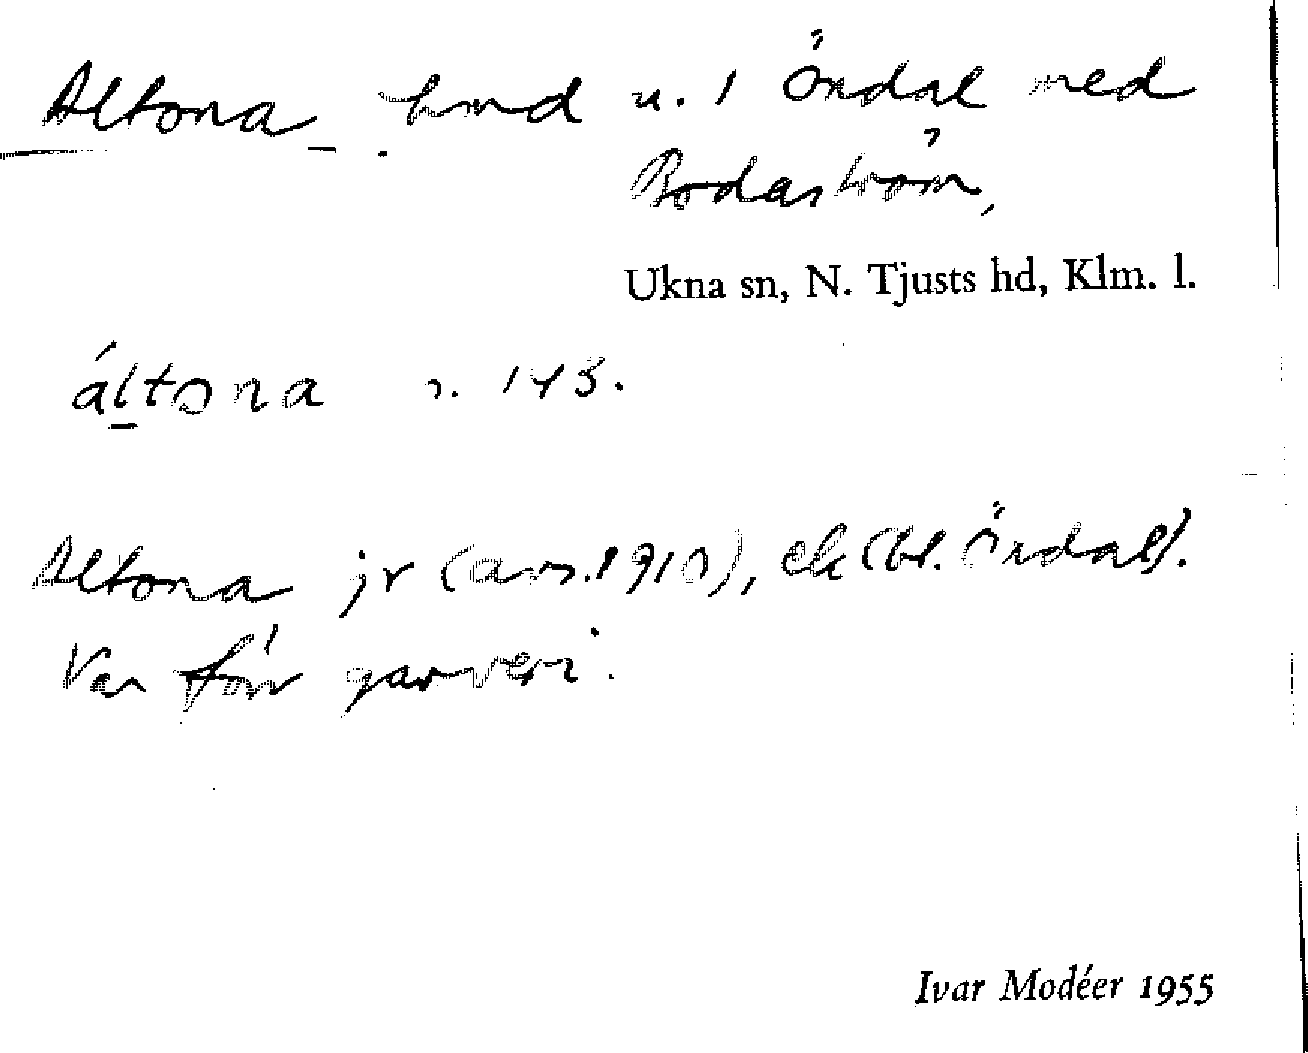 Altona hmd u. 1 Öndal med
Bodaström,
Ukna sn, N. Tjusts hd, Klm. l.
áltona s. 143.
Altona jr (avs. 1910), ek (bl. Öndal).
Var förr garveri.
Ivar Modéer 1955